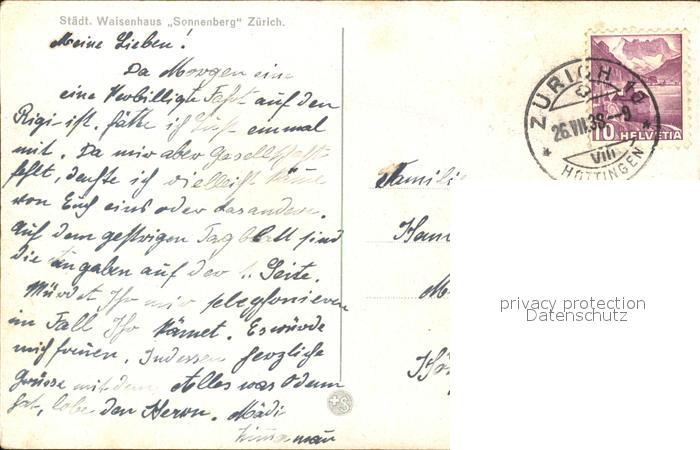 Städt. Waisenhaus „Sonnenberg" Zürich.
Meine Lieben!
Da Morgen ein
eine Verbilligte Fahrt auf den
Rigi ist, hätte ich Lust einmal
mit. Da mir aber Gesellschaft
fehlt, dachte ich vielleicht käme
von Euch eins oder das andere.
Auf dem gestrigen Tagblatt sind
die Angaben auf der 1. Seite.
Würdet Ihr mir telephonieren
im Fall Ihr kämet. Es würde
mich freuen. Indessen herzliche
Grüsse mit dem Alles was Odem
hat, lobe den Herrn. Mädi
ZÜRICH 10
26.VII.38.-9
VIII
HOTTINGEN
10 HELVETIA
Familie
privacy protection
Datenschutz